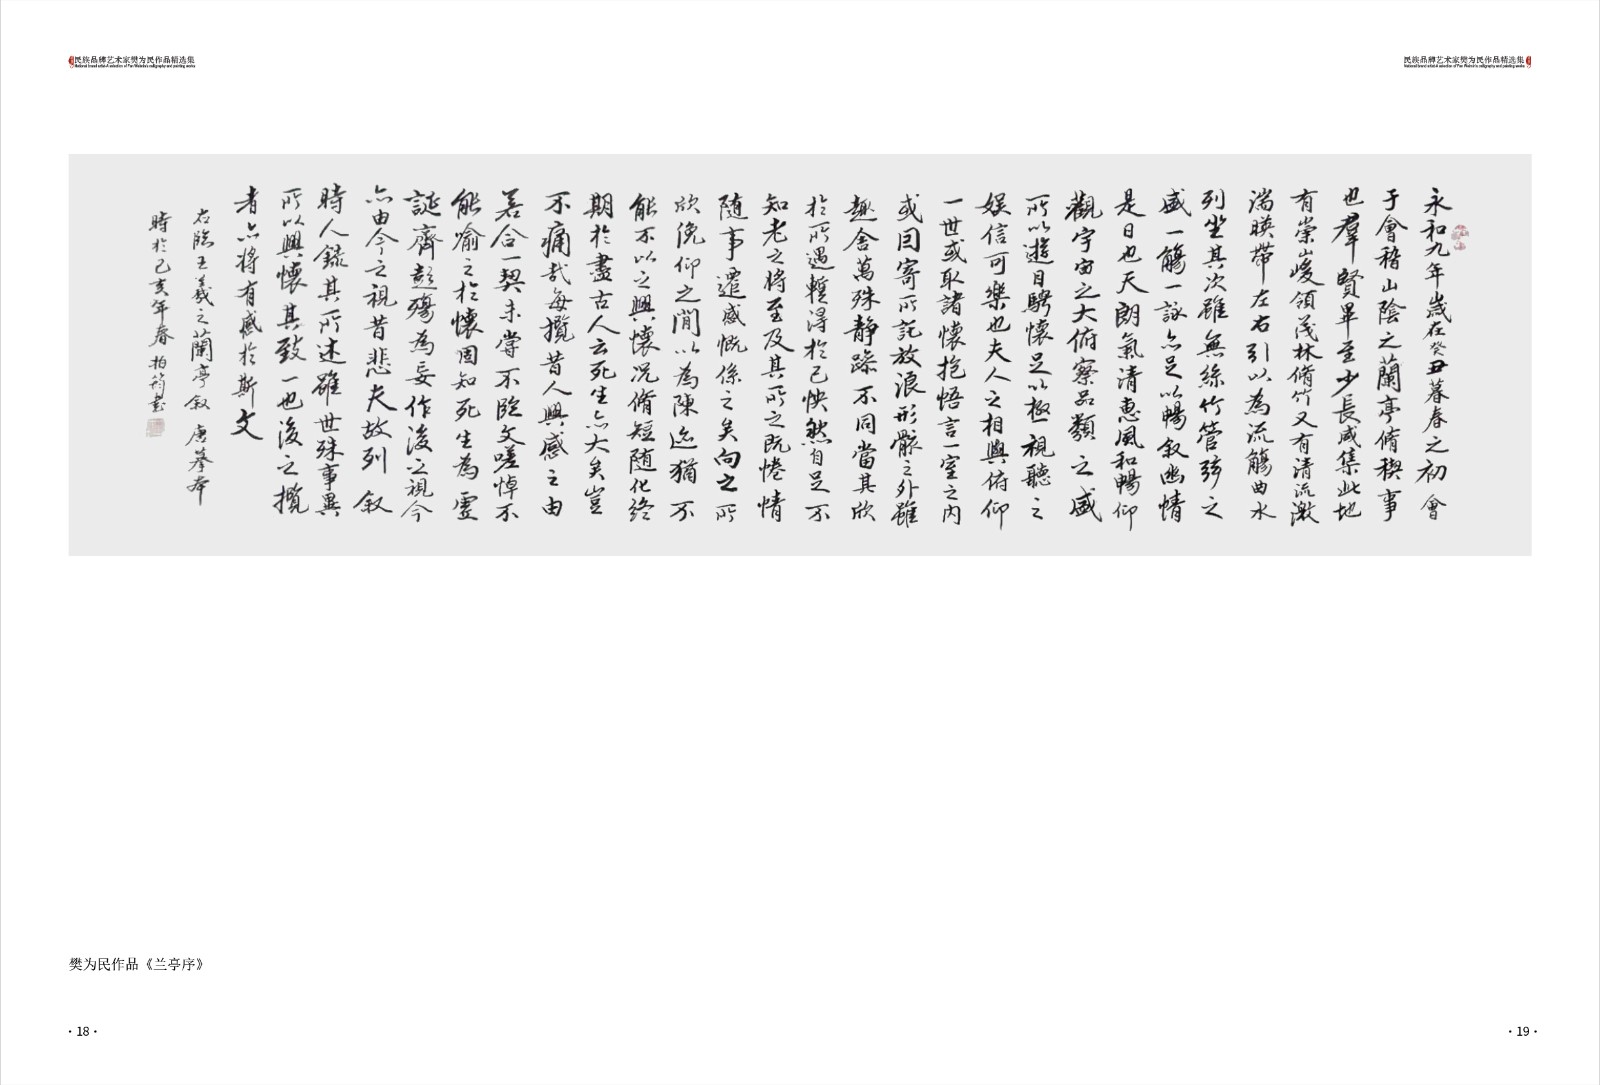 民族品牌艺术家樊为民作品精选集
National brand artist-A selection of Fan Weimin's calligraphy and painting works
民族品牌艺术家樊为民作品精选集
National brand artist-A selection of Fan Weimin's calligraphy and painting works
永和九年歲在癸丑暮春之初會
于會稽山陰之蘭亭脩稧事
也羣賢畢至少長咸集此地
有崇山峻領茂林脩竹又有清流激
湍暎帶左右引以為流觴曲水
列坐其次雖無絲竹管弦之
盛一觴一詠亦足以暢叙幽情
是日也天朗氣清惠風和暢仰
觀宇宙之大俯察品類之盛
所以遊目騁懷足以極視聽之
娛信可樂也夫人之相與俯仰
一世或取諸懷抱悟言一室之內
或因寄所託放浪形骸之外雖
趣舍萬殊静躁不同當其欣
於所遇暫得於己怏然自足不
知老之將至及其所之既惓情
随事遷感慨係之矣向之所
欣俛仰之閒以為陳迹猶不
能不以之興懷況脩短随化終
期於盡古人云死生亦大矣豈
不痛哉每攬昔人興感之由
若合一契未嘗不臨文嗟悼不
能喻之於懷固知死生為虛
誕齊彭殤為妄作後之視今
亦由今之視昔悲夫故列叙
時人録其所述雖世殊事異
所以興懷其致一也後之攬
者亦將有感於斯文
右臨王羲之蘭亭叙唐摹本
時於己亥年春柏筠書
樊为民作品《兰亭序》
·18·
·19·